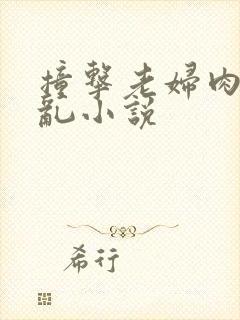 撞擊老婦肉
亂小說
希行